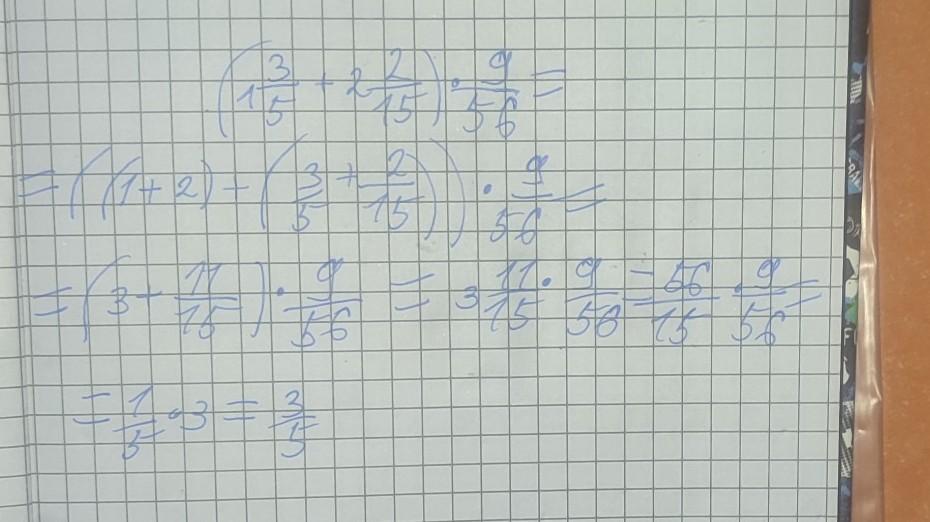 (1 3/5 + 2 2/15) · 9/56 =
= ((1 + 2) + (3/5 + 2/15)) · 9/56 =
= (3 + 11/15) · 9/56 = 3 11/15 · 9/56 = 56/15 · 9/56 =
= 1/5 · 3 = 3/5